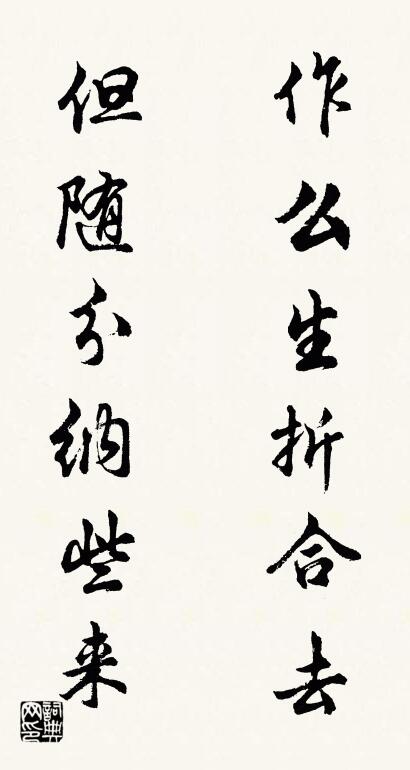 作么生折合去
但随分纳些来
詞典网印